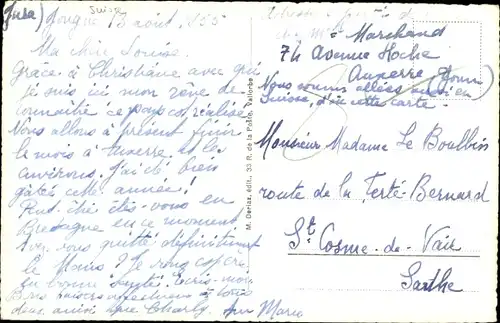 Suisse
(Jura) Jougne 13 août 55
Ma chère Louise.
Grâce à Christiane avec qui
je suis ici mon rêve de
connaître ce pays est réalisé
Nous allons à présent finir
le mois à Auxerre et les
environs. J'ai été bien
gâtée cette année !
Peut être êtes-vous en
Bretagne en ce moment
Avez vous quitté définitivement
le Mans ? Je vous espère
en bonne santé. Ecris-moi
Bons baisers affectueux à tous
deux ainsi que Charly. Marie
M. Deriaz, édit., 33 R. de la Poste, Vallorbe
Adresse
chez Mr Marchand
74 Avenue Hoche
Auxerre (Yonne)
Nous sommes allées aussi en
Suisse, d'où cette carte.
Monsieur Madame Le Boulbin
route de la Ferté-Bernard
St Cosme-de-Vair
Sarthe